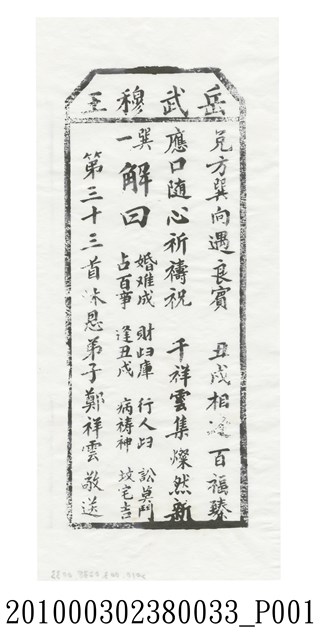 岳武穆王
兌方巽向遇良賓　丑戌相逢百福臻
應口随心祈禱祝　千祥雲集燦然新
巽一
解曰
婚难成　財歸庫　行人歸　訟莫鬥
占百事　逢丑戌　病禱神　坟宅吉
第三十三首沐恩弟子鄭祥雲敬送
201000302380033_P001